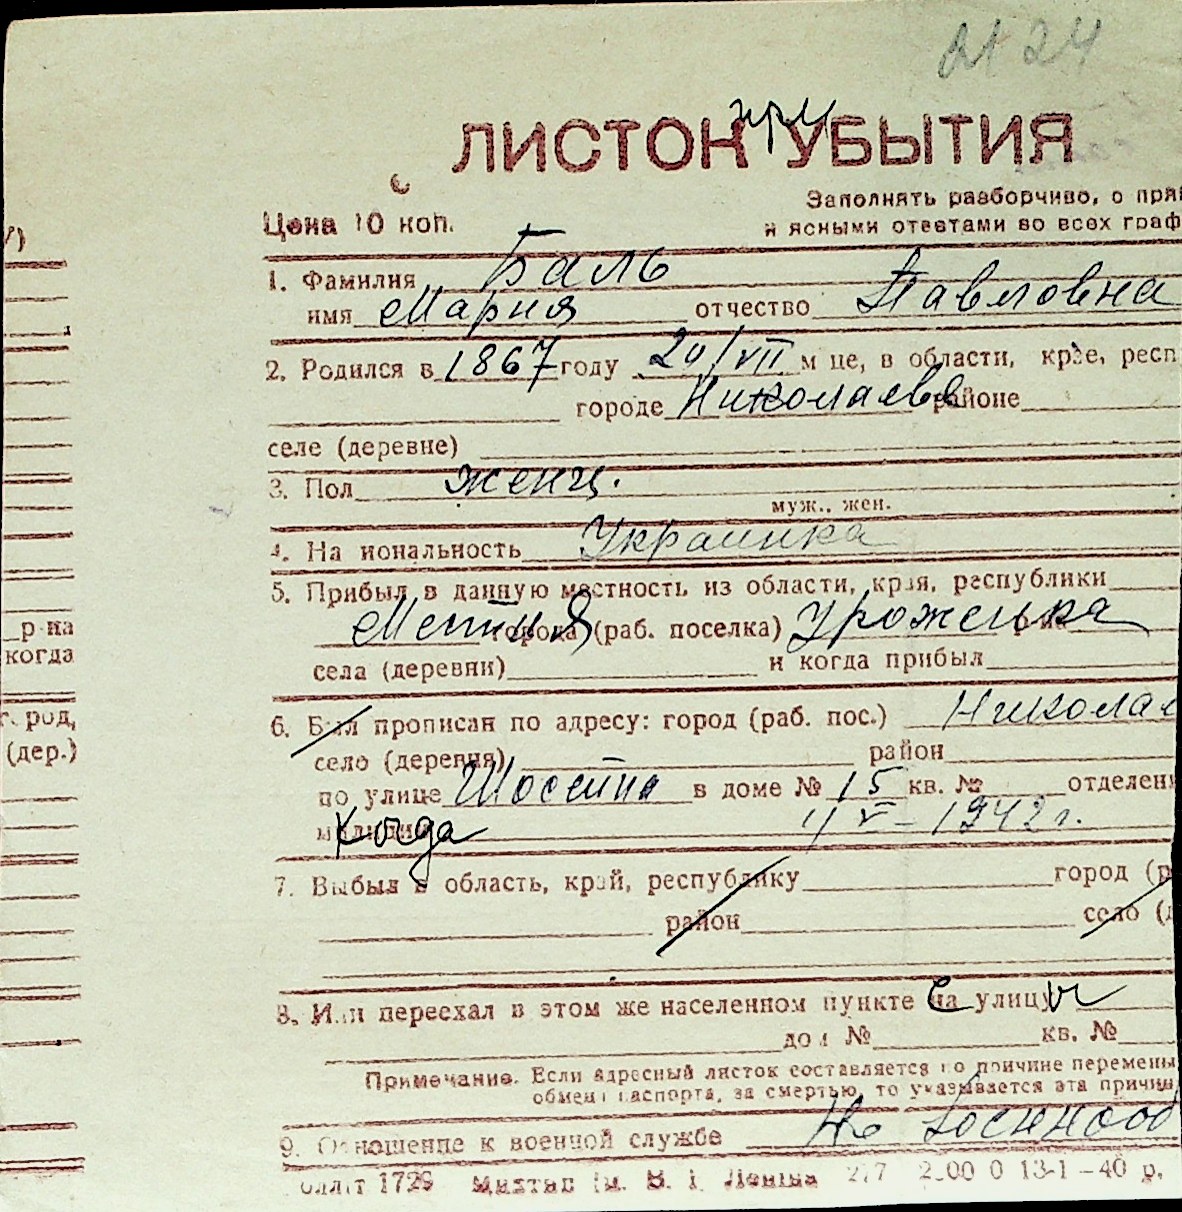 2124
при
ЛИСТОК УБЫТИЯ
Заполнять разборчиво, о пря
Цена 10 коп. и ясными ответами во всех граф
1. Фамилия Баль
имя Мария отчество Павловна
2. Родился в 1867 году 20/VII м це, в области, крае, респ
городе Николаеве районе
селе (деревне)
3. Пол женщ.
муж., жен.
4. На иональность Украинка
5. Прибыл в данную местность из области, края, республики
города (раб. поселка) Уроженка р на
села (деревни) и когда прибыл
р-на
когда
6. Был прописан по адресу: город (раб. пос.) Николае
г. род,
село (деревня) район
(дер.)
по улице в доме № 15 кв. № отделени
милиции когда V – 1942 г.
7. Выбыл в область, край, республику город (р
район село (д
8. Или переехал в этом же населенном пункте на с улицу ы
дом № кв. №
Примечание. Если адресный листок составляется по причине перемены
обмена паспорта, за смертью, то указывается эта причин
9. Отношение к военной службе Не военнооб
1729 2/7 13-1—40 р.